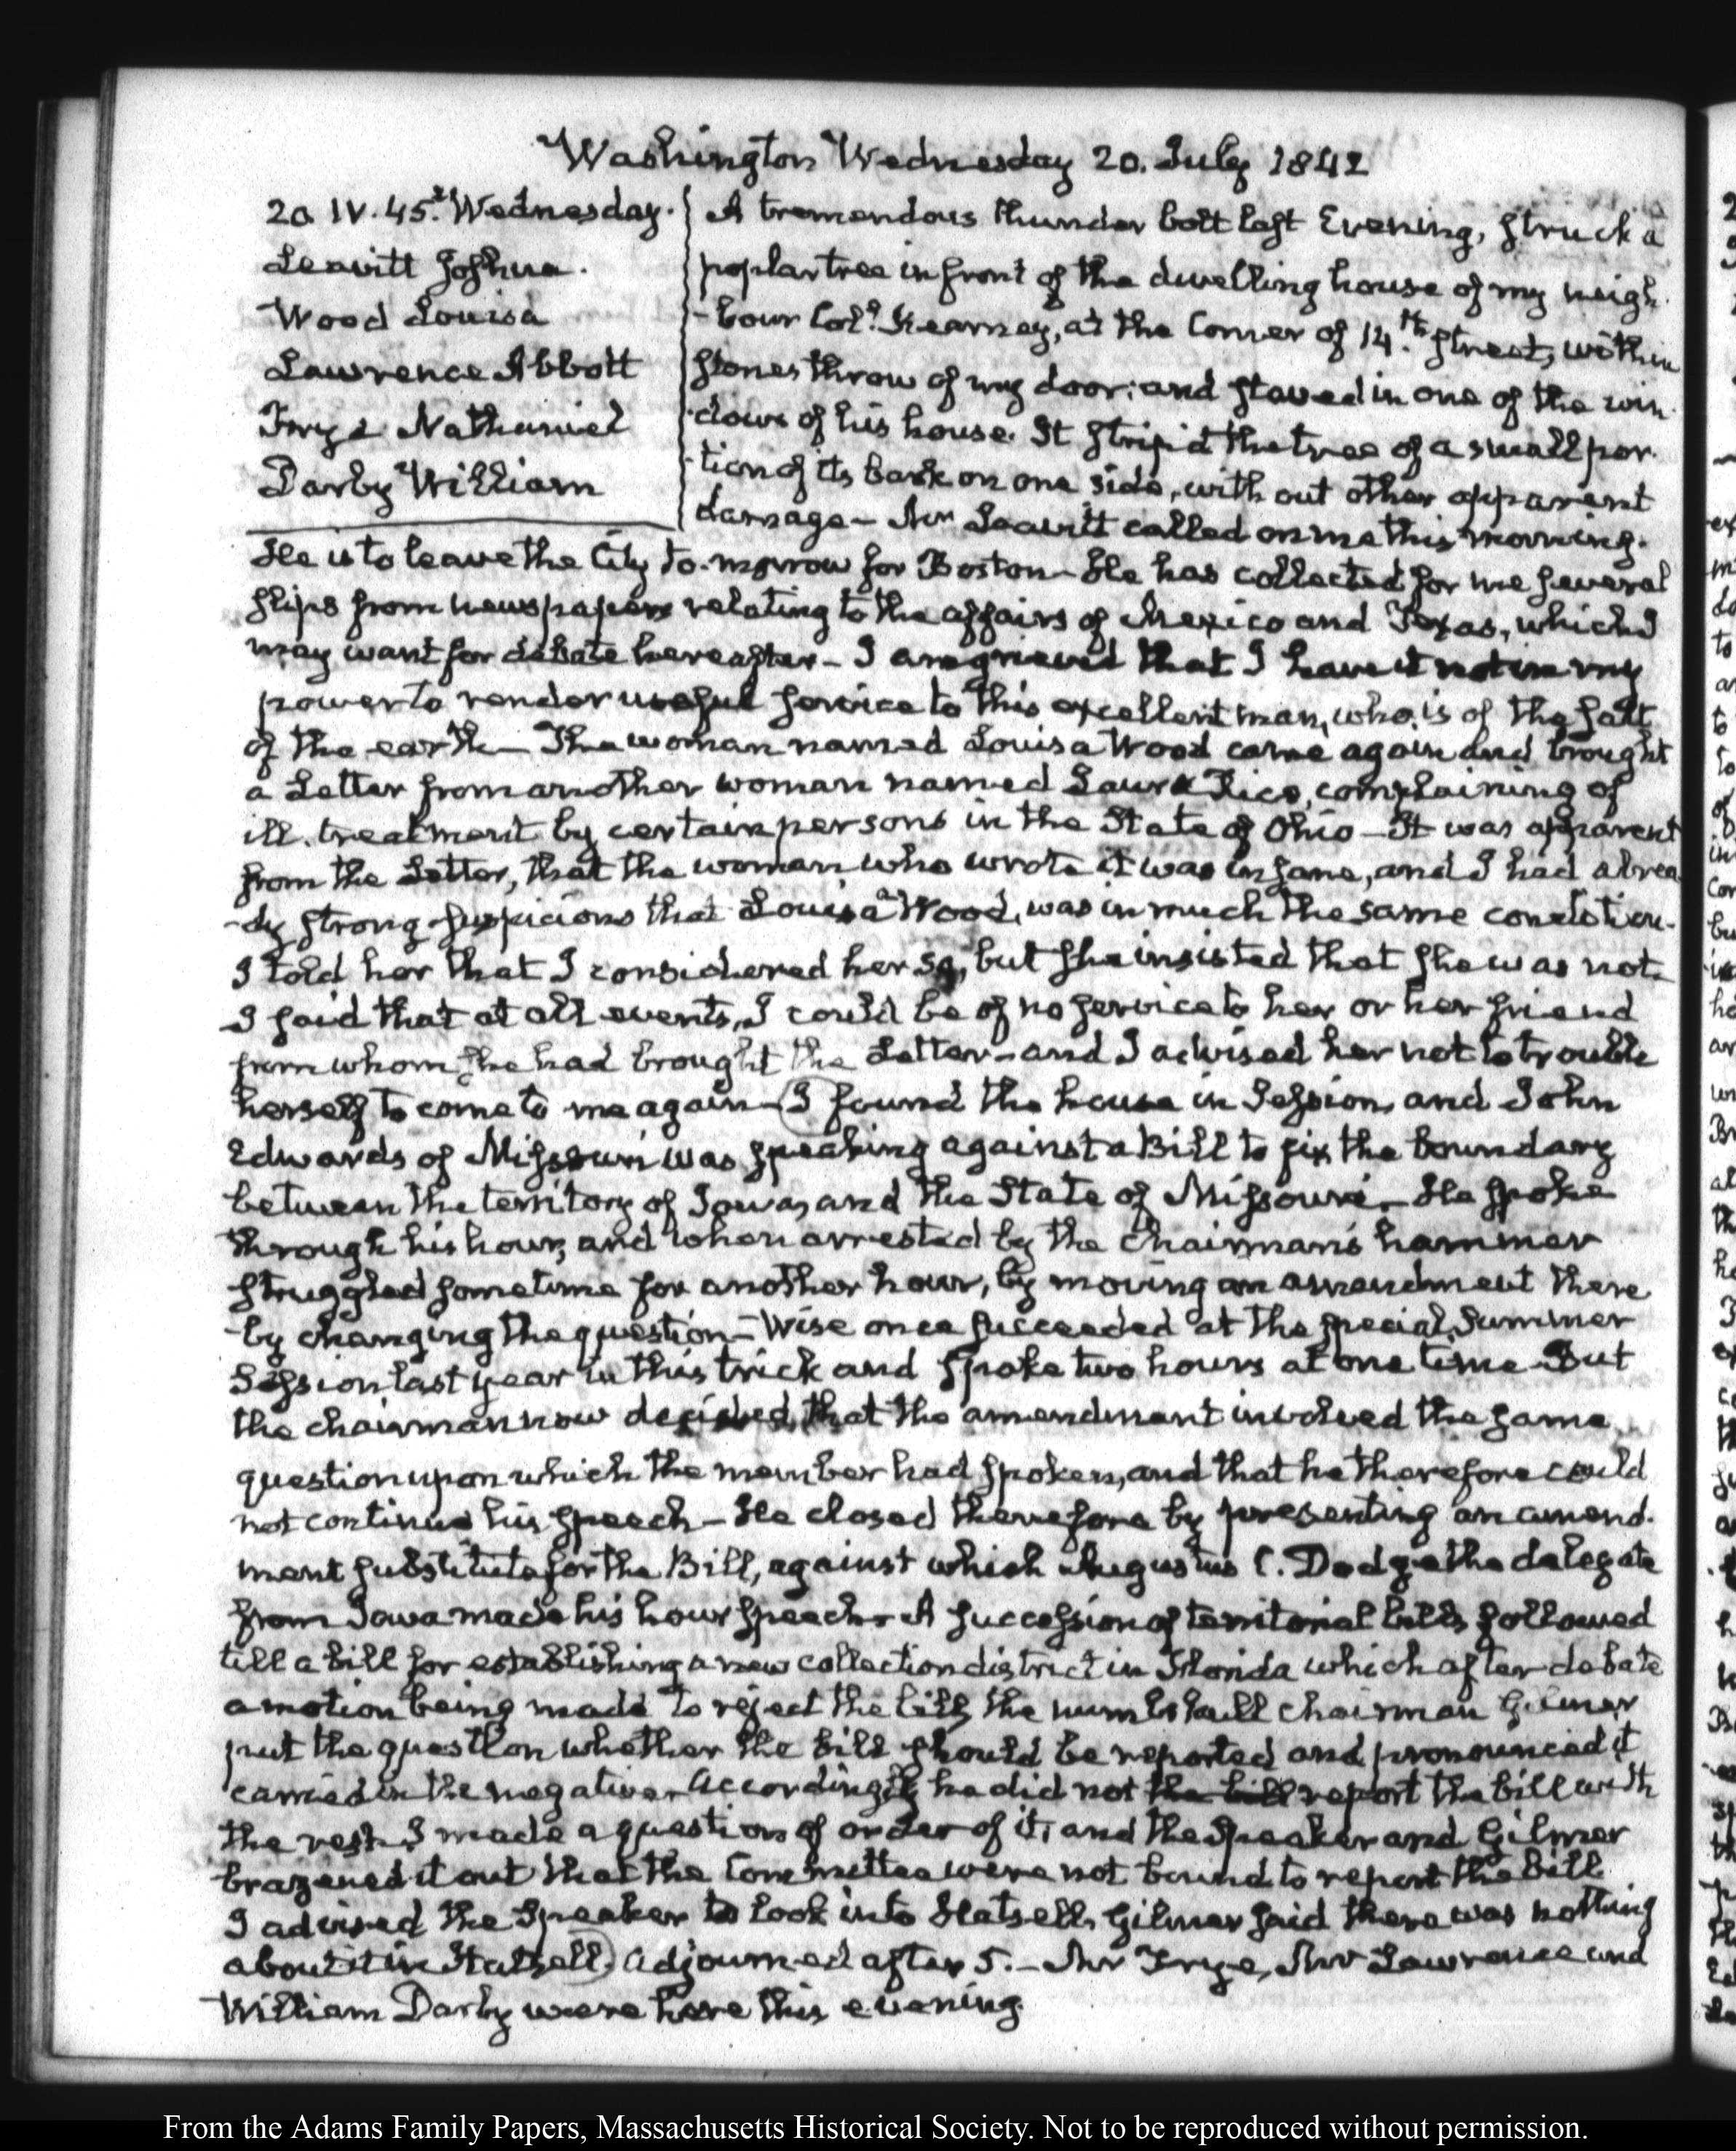 Washington Wednesday 20. July 1842
20. IV. 45. Wednesday.
Leavitt Joshua.
Wood Louisa
Lawrence Abbott
Frye Nathaniel
Darby William
A tremendous thunder bolt last Evening, struck a
poplar tree in front of the dwelling house of my neigh-
-bour Col.º Kearney, at the Corner of 14.th street, within
stones throw of my door; and staved in one of the win-
-dows of his house. It strip'd the tree of a small por-
-tion of its bark on one side, without other apparent
damage — Mr Leavitt called on me this morning.
He is to leave the City to-morrow for Boston — He has collected for me several
slips from newspapers relating to the affairs of Mexico and Texas, which I
may want for debate hereafter — I am grieved that I have it not in my
power to render useful service to this excellent man, who is of the salt
of the earth — The woman named Louisa Wood came again and brought
a Letter from another woman named Laura Rice, complaining of
ill-treatment by certain persons in the State of Ohio — It was apparent
from the Letter, that the woman who wrote it was insane, and I had alrea-
-dy strong suspicions that Louisa Wood, was in much the same condition.
I told her that I considered her so, but she insisted that she was not.
I said that at all events, I could be of no service to her or her friend
from whom she had brought the Letter — and I advised her not to trouble
herself to come to me again — I found the house in Session, and John
Edwards of Missouri was speaking against a Bill to fix the boundary
between the territory of Iowa, and the State of Missouri — He spoke
through his hour, and when arrested by the Chairman's hammer
struggled sometime for another hour, by moving an amendment there
-by changing the question — Wise once succeeded at the special Summer
Session last year in this trick and spoke two hours at one time But
the chairman now decided, that the amendment involved the same
question upon which the member had spoken, and that he therefore could
not continue his speech — He closed therefore by presenting an amend-
ment substitute for the Bill, against which Augustus C. Dodge the delegate
from Iowa made his hour speech. A succession of territorial bills followed
till a bill for establishing a new collection district in Florida which after debate
a motion being made to reject the bill, the numbskull chairman Gilmer
put the question whether the bill should be reported and pronounced it
carried in the negative. Accordingly he did not the bill report the bill with
the rest. I made a question of order of it, and the Speaker and Gilmer
brazened it out that the Committee were not bound to report the bill
I advised the Speaker to look into Hatsell, Gilmer said there was nothing
about it in Hatsell. Adjourned after 5. — Mr Frye, Mr Lawrence and
William Darby were here this evening.
From the Adams Family Papers, Massachusetts Historical Society. Not to be reproduced without permission.